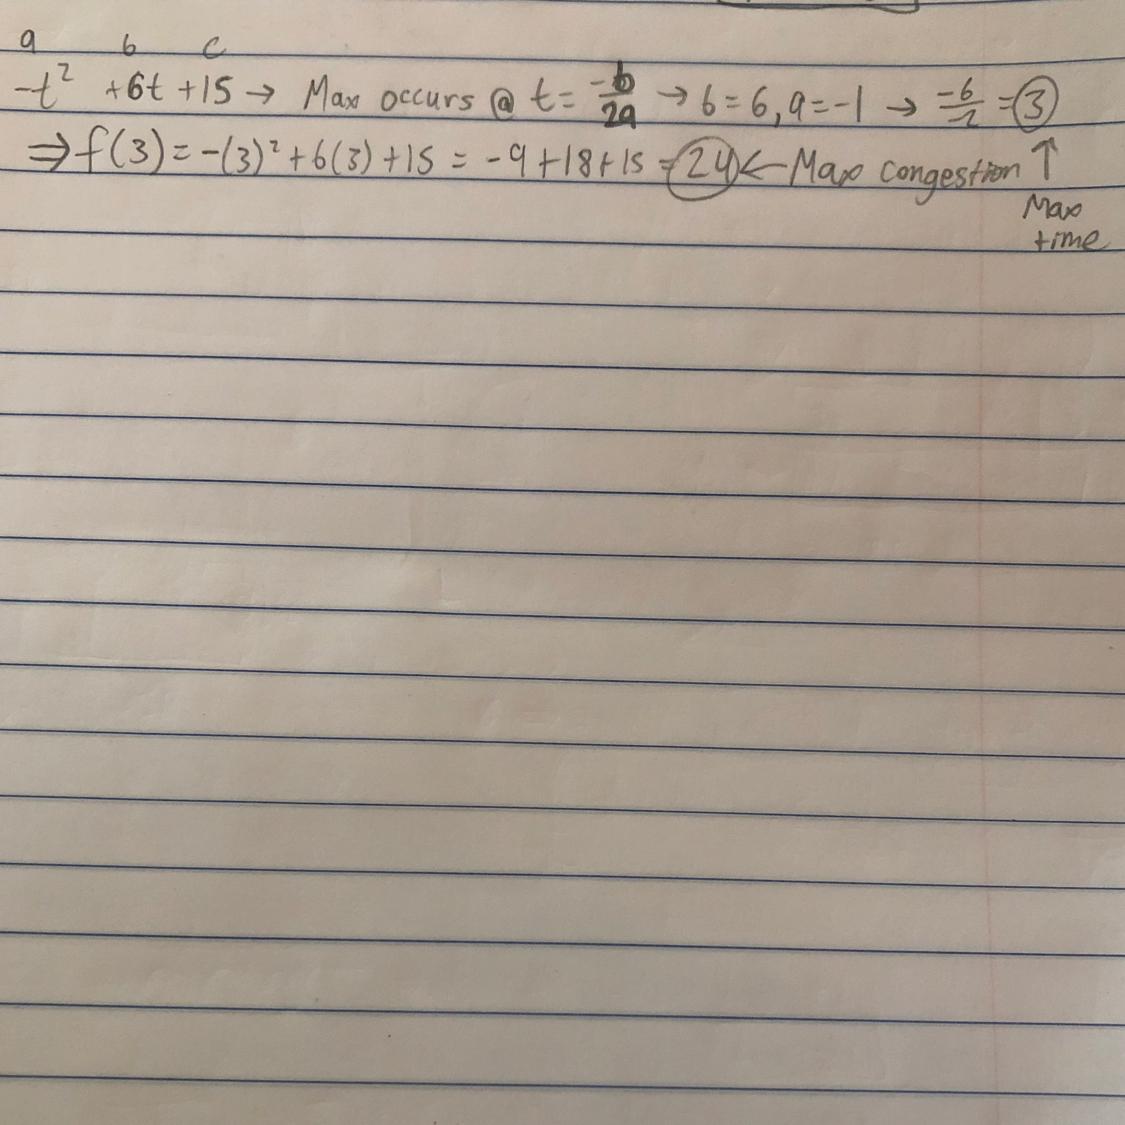 a b c
-t² +6t +15 → Max occurs @ t = -b/2a → b = 6, a = -1 → -6/-2 = 3
⇒ f(3) = -(3)² + 6(3) + 15 = -9 + 18 + 15 = 24 ← Max congestion ↑
Max
time